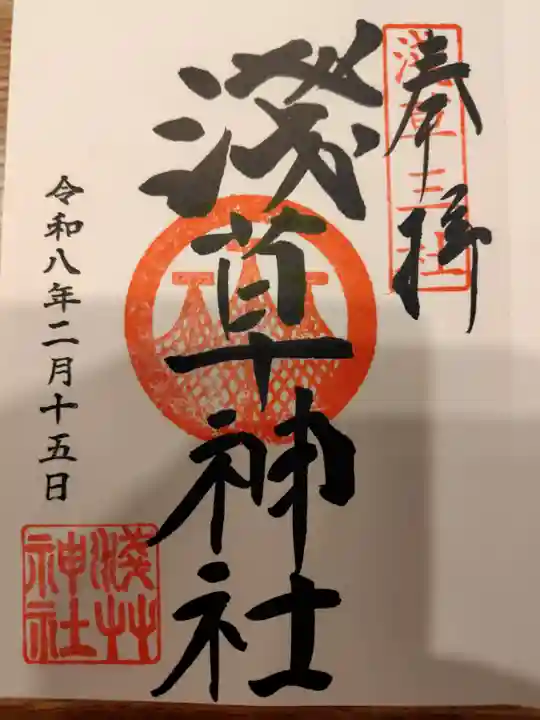 奉拝
淺草三社
淺草神社
令和八年二月十五日
淺草
神社